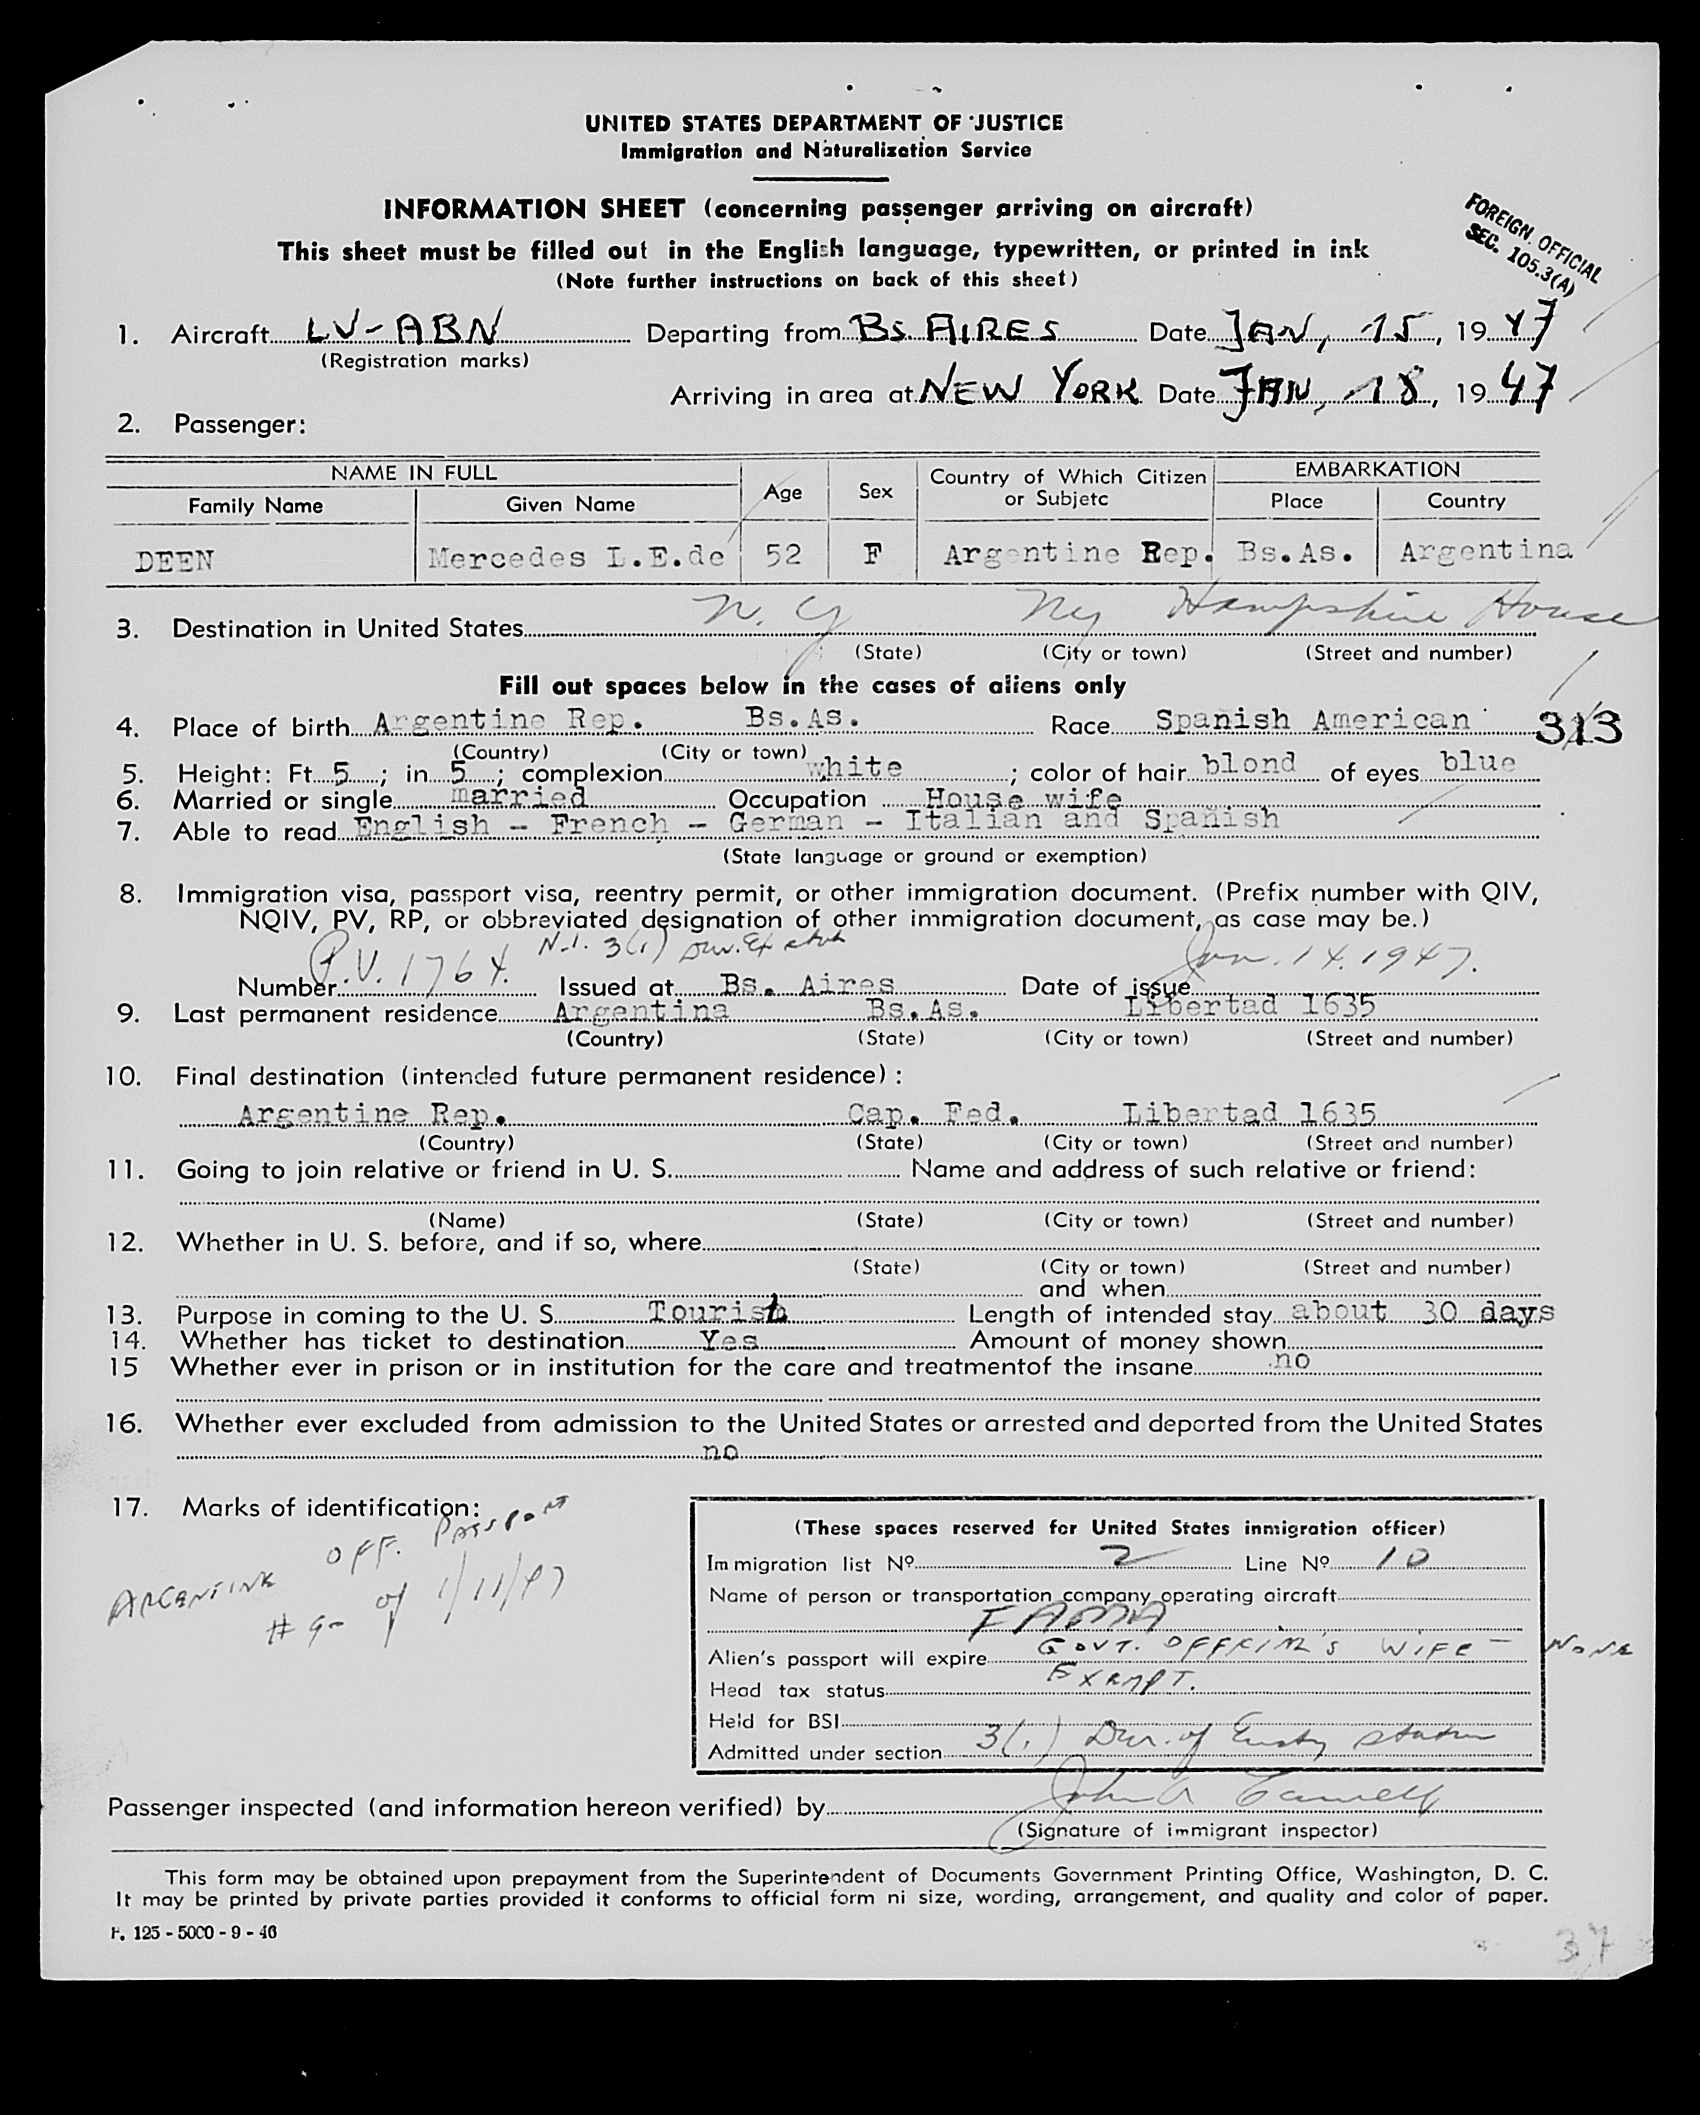 UNITED STATES DEPARTMENT OF JUSTICE
Immigration and Naturalization Service
INFORMATION SHEET (concerning passenger arriving on aircraft)
This sheet must be filled out in the English language, typewritten, or printed in ink
(Note further instructions on back of this sheet)
FOREIGN OFFICIAL
SEC. 105.3(A)
1. Aircraft LV-ABN Departing from Bs AIRES Date JAN, 15, 1947
(Registration marks)
Arriving in area at NEW YORK Date JAN, 18, 1947
2. Passenger:
NAME IN FULL Age Sex Country of Which Citizen or Subjetc EMBARKATION
Family Name Given Name Place Country
DEEN Mercedes L.E.de 52 F Argentine Rep. Bs.As. Argentina
3. Destination in United States N.Y Ny Hampshire House
(State) (City or town) (Street and number)
Fill out spaces below in the cases of aliens only
4. Place of birth Argentine Rep. Bs.As. Race Spanish American 313
(Country) (City or town)
5. Height: Ft. 5; in 5; complexion white; color of hair blond of eyes blue
6. Married or single married Occupation House wife
7. Able to read English - French - German - Italian and Spanish
(State language or ground or exemption)
8. Immigration visa, passport visa, reentry permit, or other immigration document. (Prefix number with QIV,
NQIV, PV, RP, or obbreviated designation of other immigration document, as case may be.)
N.I. 3(1)
Number P.V. 1764. Issued at Bs. Aires Date of issue Jan. 14. 1947.
9. Last permanent residence Argentina Bs.As. Libertad 1635
(Country) (State) (City or town) (Street and number)
10. Final destination (intended future permanent residence) :
Argentine Rep. Cap. Fed. Libertad 1635
(Country) (State) (City or town) (Street and number)
11. Going to join relative or friend in U. S. Name and address of such relative or friend:
(Name) (State) (City or town) (Street and number)
12. Whether in U. S. before, and if so, where
(State) (City or town) (Street and number)
and when
13. Purpose in coming to the U. S. Tourist Length of intended stay about 30 days
14. Whether has ticket to destination Yes Amount of money shown
15 Whether ever in prison or in institution for the care and treatmentof the insane no
16. Whether ever excluded from admission to the United States or arrested and deported from the United States
no
17. Marks of identification:
ARGENTINE OFF. PASSPORT
# 90 of 1/11/47
(These spaces reserved for United States inmigration officer)
Immigration list Nº 2 Line Nº 10
Name of person or transportation company operating aircraft
FAMA
Alien's passport will expire GOVT. OFFICIAL'S WIFE - NONE
Head tax status EXEMPT.
Held for BSI
Admitted under section 3(1) Dur. of Status
Passenger inspected (and information hereon verified) by
(Signature of immigrant inspector)
This form may be obtained upon prepayment from the Superintendent of Documents Government Printing Office, Washington, D. C.
It may be printed by private parties provided it conforms to official form ni size, wording, arrangement, and quality and color of paper.
F. 125 - 5000 - 9 - 46
37